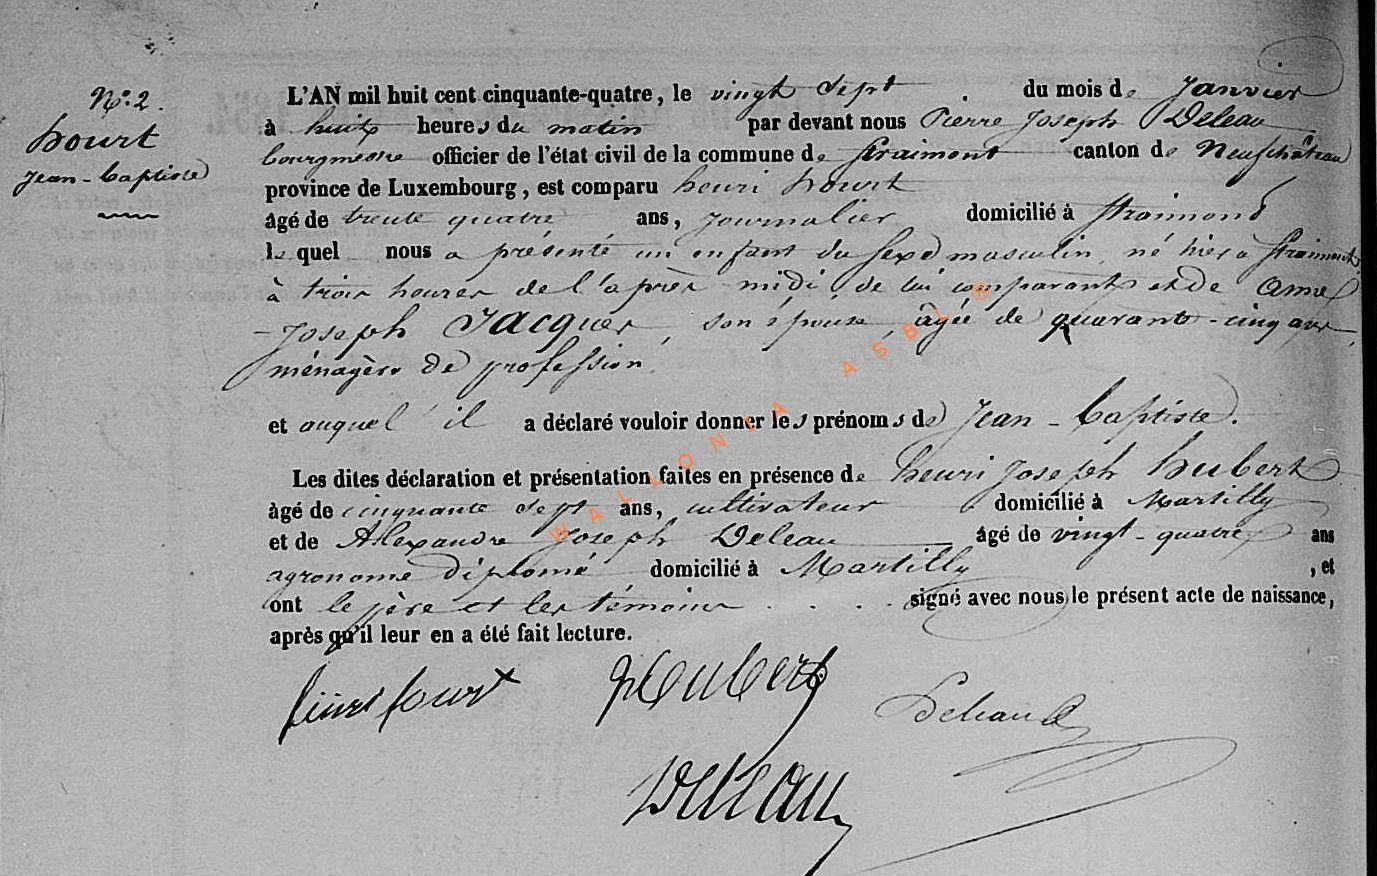 N.o 2.
hourt
jean-baptiste
L'AN mil huit cent cinquante-quatre, le vingt sept du mois de Janvier
à huit heures du matin par devant nous Pierre Joseph Deleau
bourgmestre officier de l'état civil de la commune de straimont canton de Neufchâteau
province de Luxembourg, est comparu henri hourt
âgé de trente quatre ans, journalier domicilié à straimont
le quel nous a présenté un enfant du sexe masculin, né hier à straimont,
à trois heures de l'après-midi, de lui comparant et de
-Joseph Jacques, son épouse, âgée de quarante-cinq ans,
ménagère de profession,
et auquel il a déclaré vouloir donner les prénoms de Jean-baptiste.
Les dites déclaration et présentation faites en présence de henri Joseph hubert
âgé de cinquante sept ans, cultivateur domicilié à Martilly
et de Alexandre Joseph Deleau âgé de vingt-quatre ans
agronome diplomé domicilié à Martilly, et
ont le père et les témoins . . . . signé avec nous le présent acte de naissance,
après qu'il leur en a été fait lecture.
henri hourt hubert Deleau
Deleau
WALLONIA ASBL ®